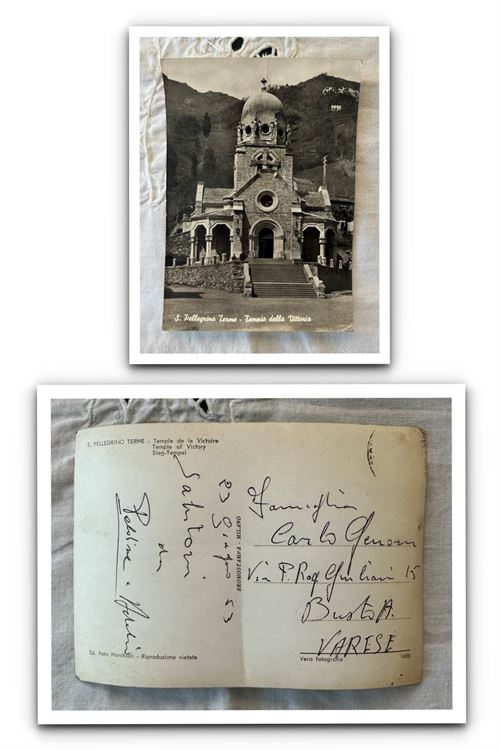 S. Pellegrino Terme - Tempio della Vittoria
S. PELLEGRINO TERME - Temple de la Victoire
Temple of Victory
Sieg-Tempel
23 Giugno 53
Salutoni
da
BROMOSTAMPA - MILANO
Famiglia
Carlo
Via P. Rog Giuliani 15
Busto A.
VARESE
Ed. Foto Marchiori - Riproduzione vietata
Vera fotografia